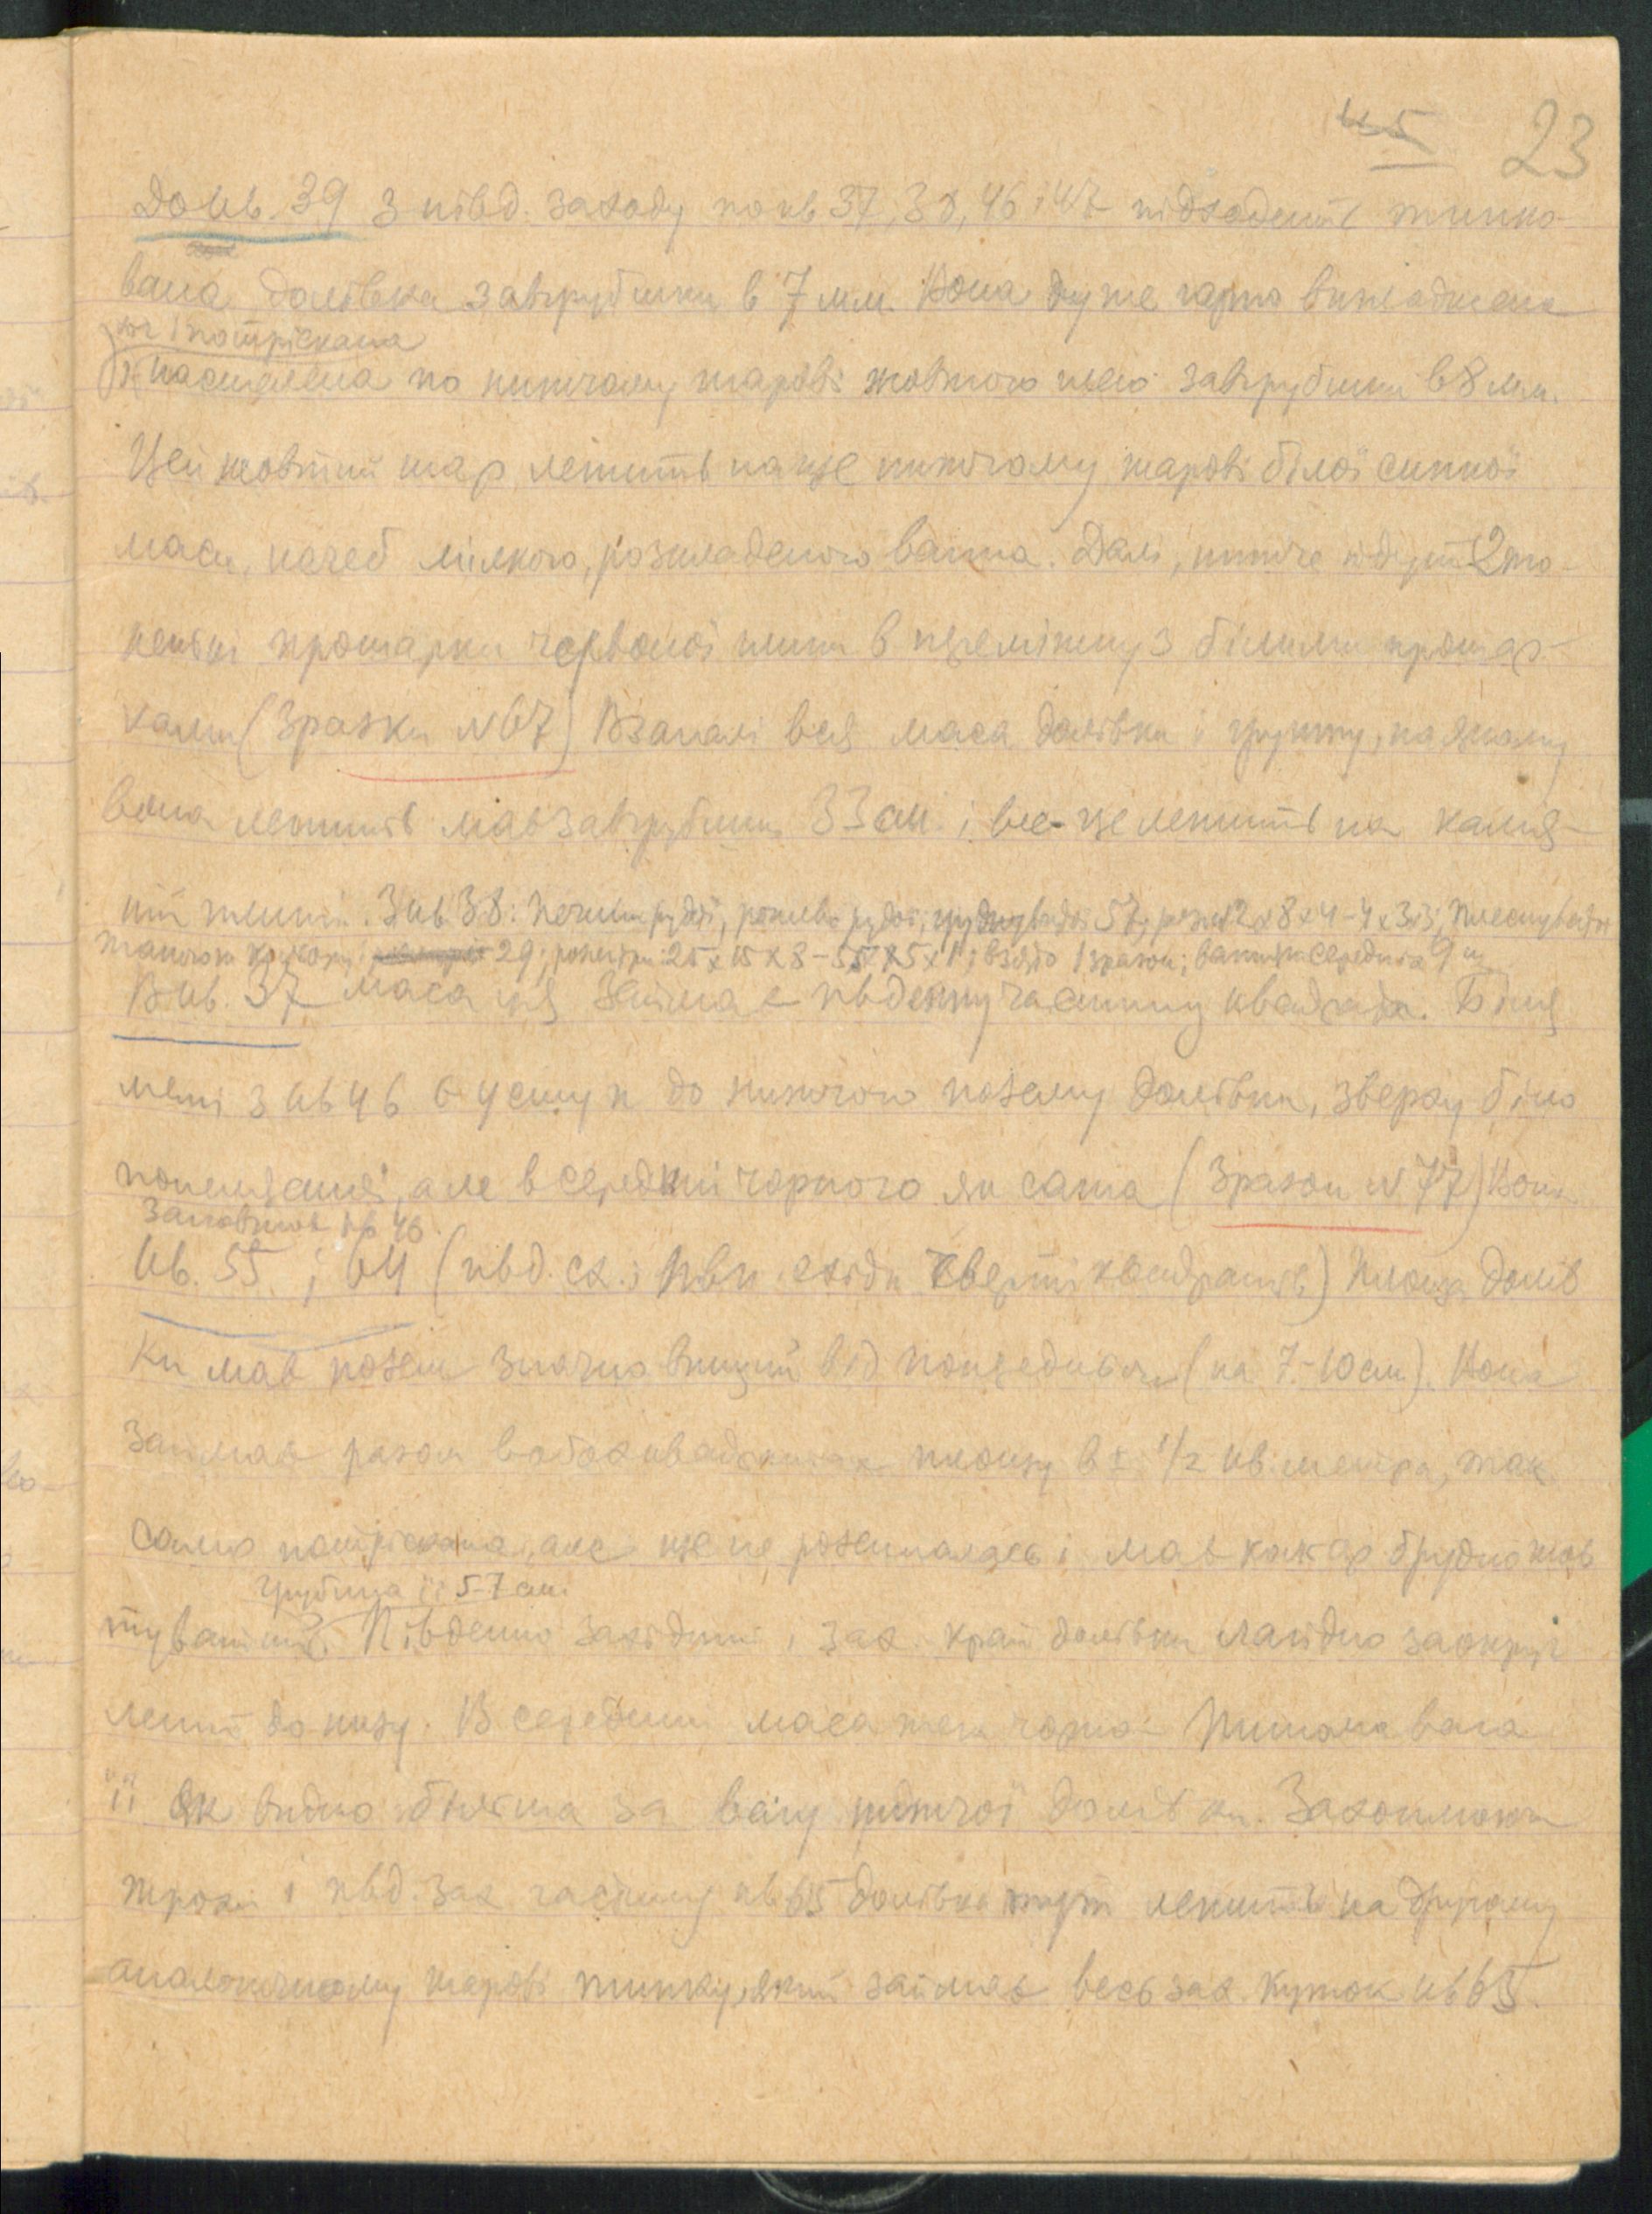 45 23
До кв. 39 з півд. заходу по кв 37, 38, 46 і 47 підходить тинко-
вана долівка завгрубшки в 7 мм. Вона дуже гарно вигладжена
хоч і потріскана
Насилена по нижчому шарові жовтого завгрубшки в 8 мм.
Цей жовтий шар лежить на ще нижчому шарові білої сипкої
маси, начеб мілкого, розкладеного вапна. Далі, нижче йдуть 2 то-
ненькі прошарки червоної глини в переміжку з білими прошар-
ками (Зразки № 67) Взагалі вся маса долівки і ґрунту, на якому
вона лежить має завгрубшки 33 см. і все це лежить на камя-
ній плиті. З кв. 38: печина руді, рожево руді, 57; розм 12 х 8 х 4 – 4 х 3 х 3;
такого ж кольору 29; розміри: 25 х 15 х 8 – 5 х 5 х 1; взято 1 зразок;
В кв. 37 маса ця займає південну частину квадрата. Біля
межі з кв 46 є уступ до нижчого позему долівки, зверху біло
попелястої, але в середині чорного як сажа (Зразок № 77) Вона
заповнює кв 46.
Кв. 55 і 64 (півд. сх. і півн. східн чверті квадратів) Площа долів
ки має позем значно вищий від попередньої (на 7-10 см). Вона
займає разом в обох квадратах площу в ± 1/2 кв. метра, так
само потріскана, але ще не розсипалась і має кольор брудно жов
грубина її 5-7 см.
туватий. Південно західний і зах. край долівки лагідно заокруг
лений до низу. В середині маса теж чорна. Питома вага
її як видно більша за вагу нижчої долівки. Захоплюючи
трохи і півд. зах частину кв 65 долівка тут лежить на другому
аналогічному шарові тинку, який займає весь зах. куток кв 65.